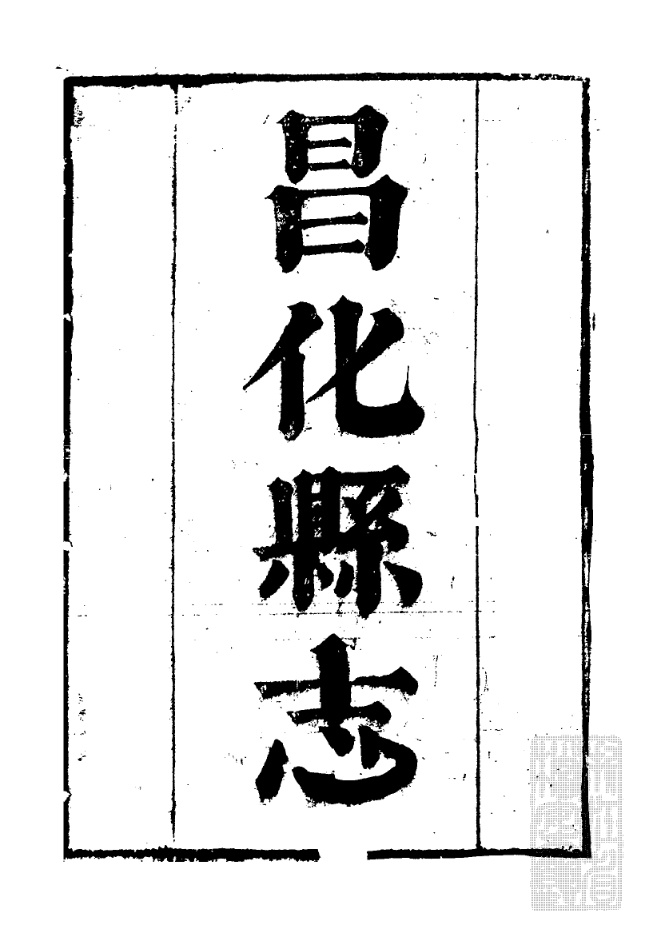 昌化縣志